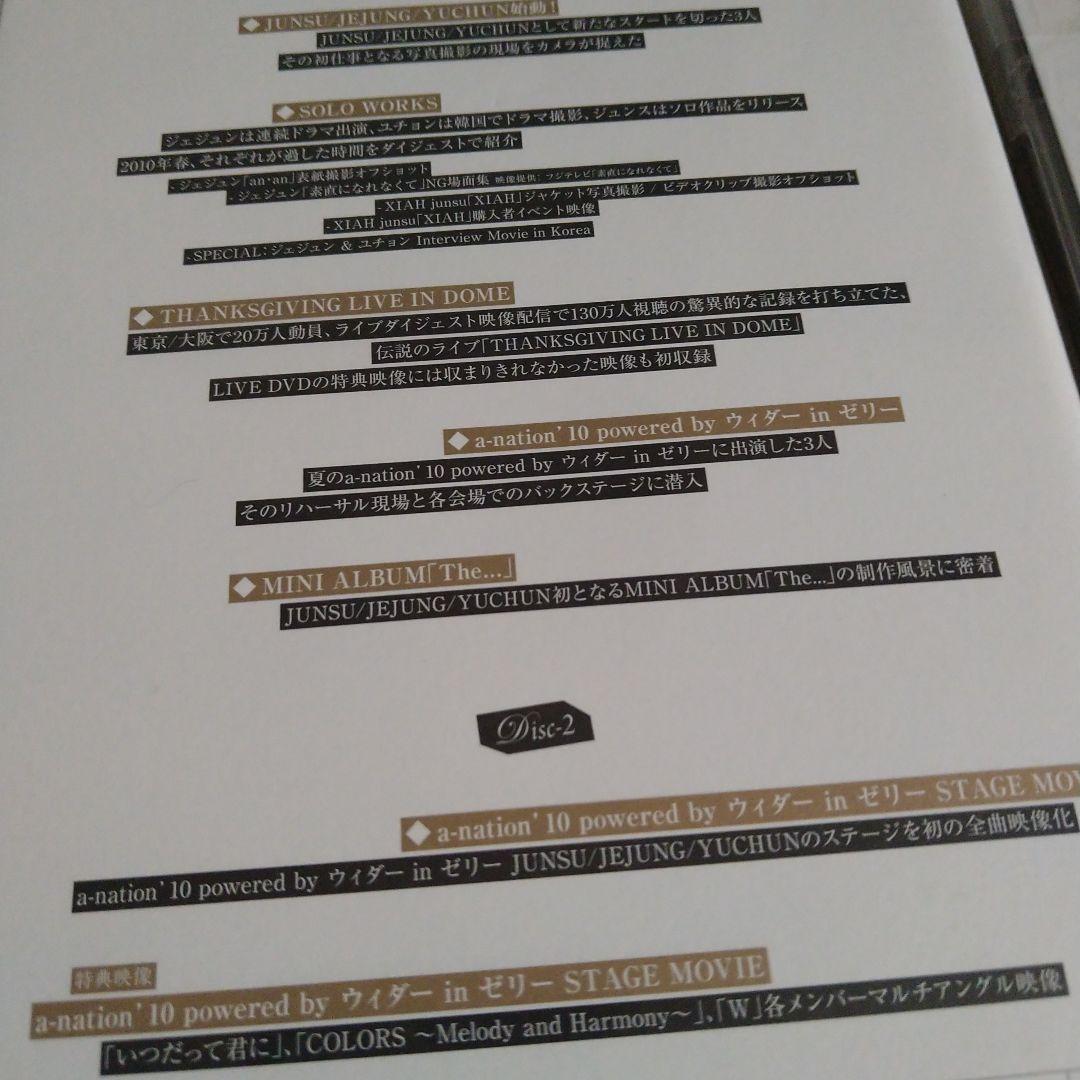 ◆JUNSU/JEJUNG/YUCHUN始動!
JUNSU/JEJUNG/YUCHUNとして新たなスタートを切った3人
その初仕事となる写真撮影の現場をカメラが捉えた
◆SOLO WORKS
ジェジュンは連続ドラマ出演、ユチョンは韓国でドラマ撮影、ジュンスはソロ作品をリリース
2010年春、それぞれが過した時間をダイジェストで紹介
- ジェジュン「an・an」表紙撮影オフショット
- ジェジュン「素直になれなくて」NG場面集 映像提供:フジテレビ「素直になれなくて」
- XIAH junsu「XIAH」ジャケット写真撮影 / ビデオクリップ撮影オフショット
- XIAH junsu「XIAH」購入者イベント映像
- SPECIAL:ジェジュン & ユチョン Interview Movie in Korea
◆THANKSGIVING LIVE IN DOME
東京/大阪で20万人動員、ライブダイジェスト映像配信で130万人視聴の驚異的な記録を打ち立てた、
伝説のライブ「THANKSGIVING LIVE IN DOME」
LIVE DVDの特典映像には収まりきれなかった映像も初収録
◆a-nation'10 powered by ウィダー in ゼリー
夏のa-nation'10 powered by ウィダー in ゼリーに出演した3人
そのリハーサル現場と各会場でのバックステージに潜入
◆MINI ALBUM「The...」
JUNSU/JEJUNG/YUCHUN初となるMINI ALBUM「The...」の制作風景に密着
Disc-2
◆a-nation'10 powered by ウィダー in ゼリー STAGE MOV
a-nation'10 powered by ウィダー in ゼリー JUNSU/JEJUNG/YUCHUNのステージを初の全曲映像化
特典映像
a-nation'10 powered by ウィダー in ゼリー STAGE MOVIE
「いつだって君に」、「COLORS ～Melody and Harmony～」、「W」各メンバーマルチアングル映像